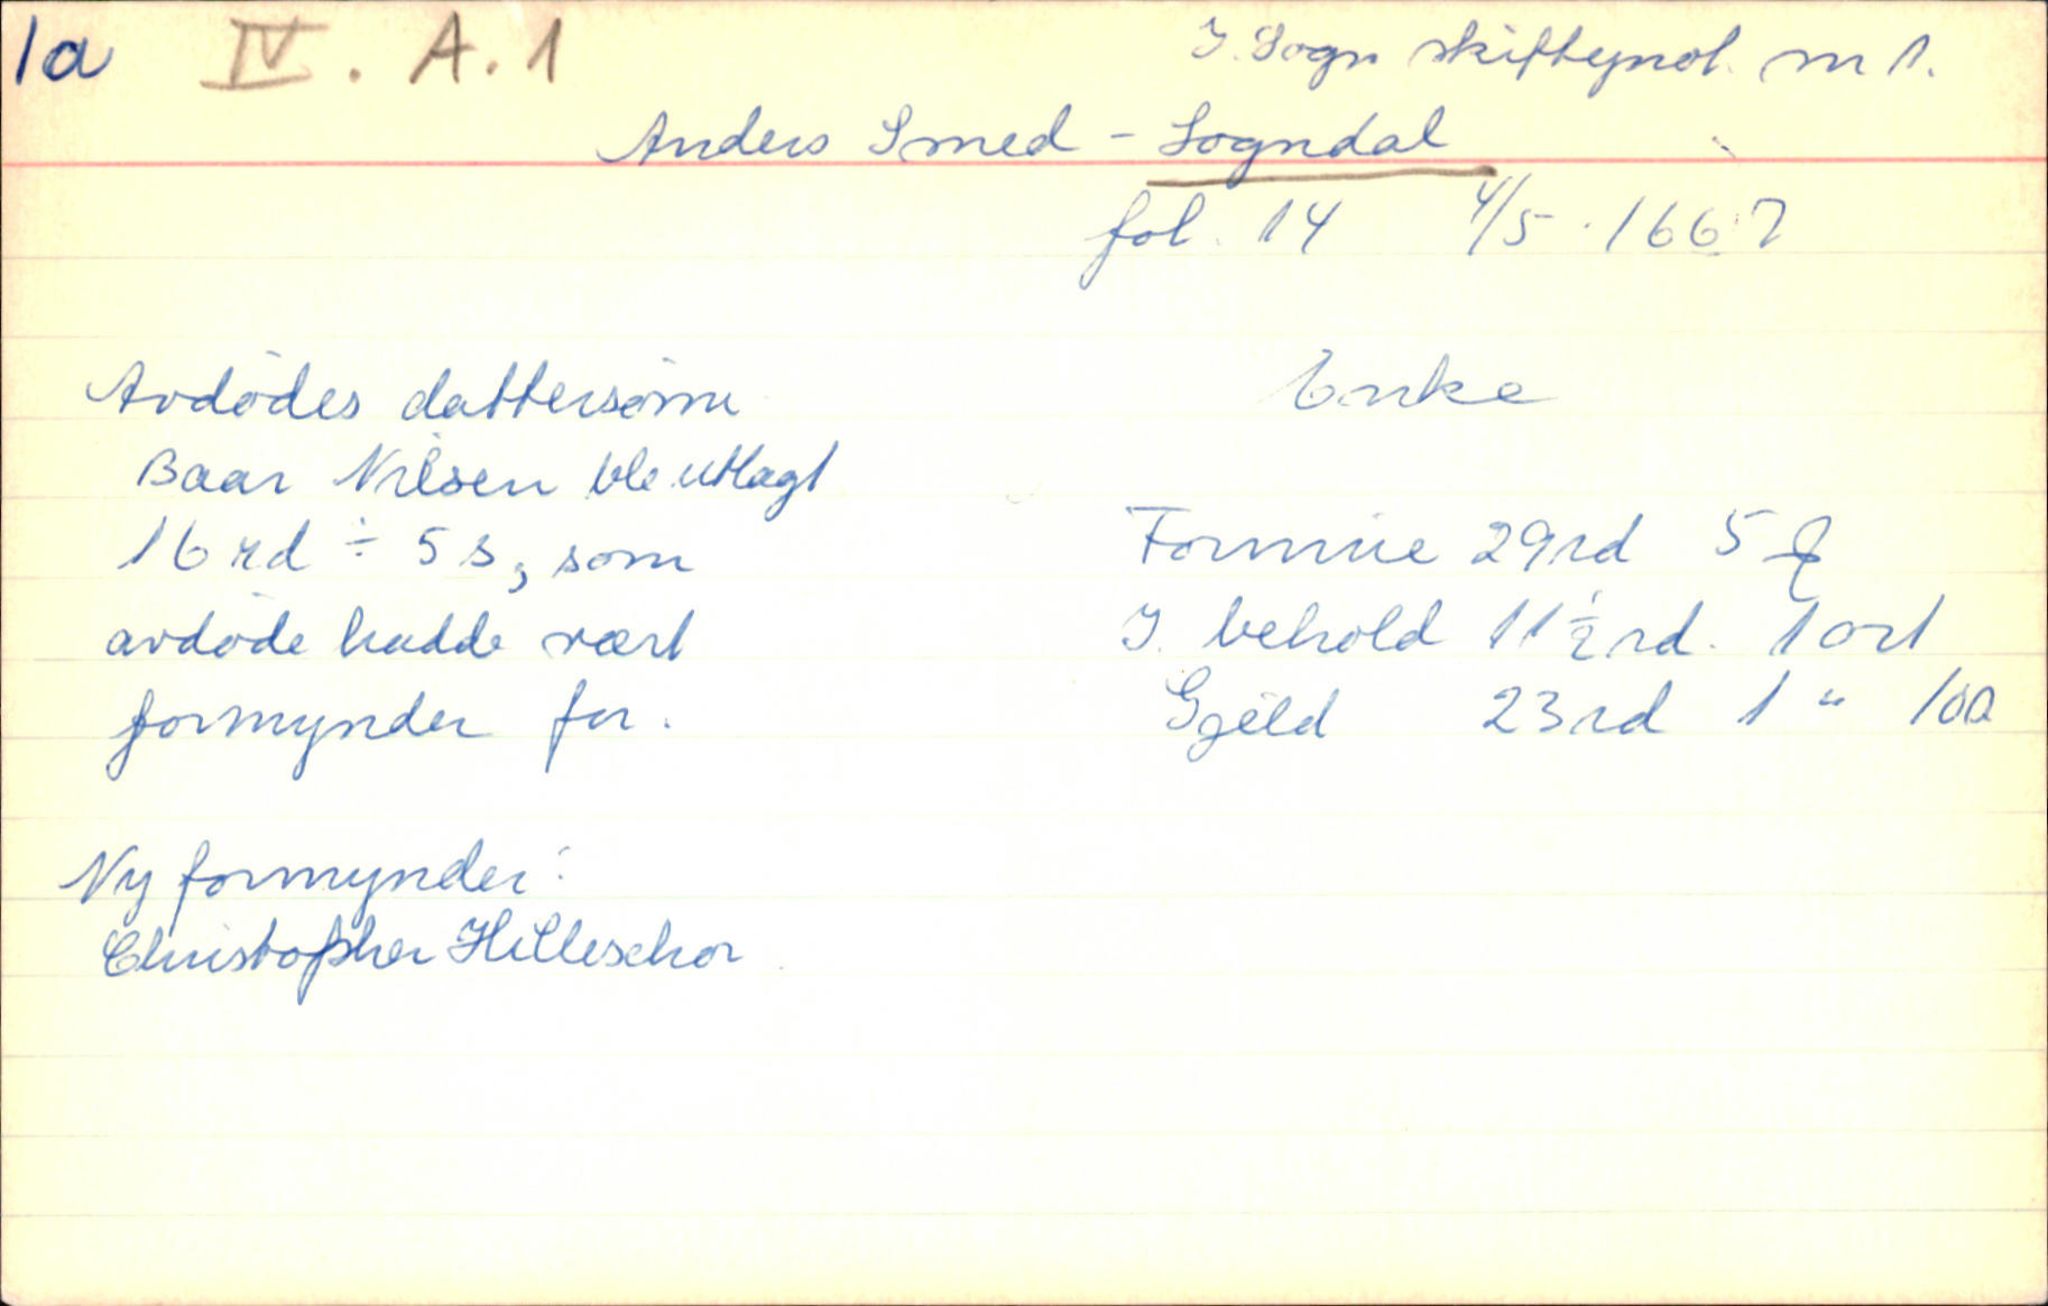 1a IV. A.1 I. Sogn skifteprot. nr 1.
Anders Smed - Sogndal
fol. 14 4/5 1667
Avdødes dattersønn Enke
Baar Nilsen ble utlagt
16 rd ÷ 5 s, som
avdøde hadde vært
formynder for.
Formue 29 rd 5 ꝭ
I behold 11 1/2 rd. 1 ort
Gjeld 23 rd 1 "
Ny formynder:
Christopher Hilleschor